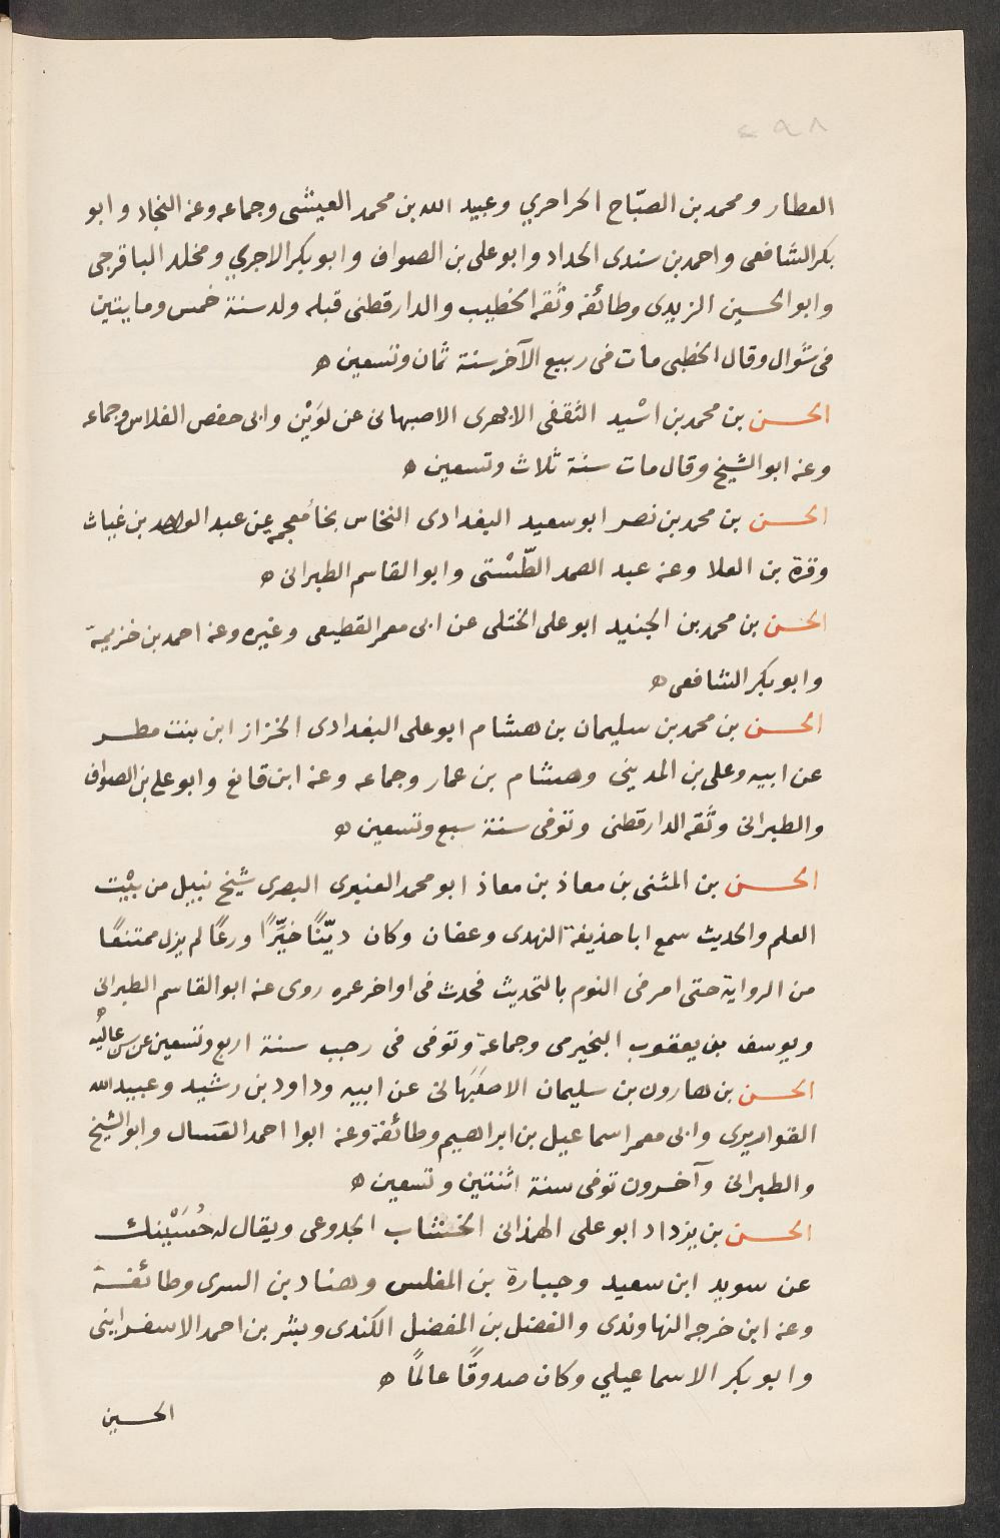 ٤٩٨
العطار ومحمد بن الصبّاح الجرجري وعبيد الله بن محمد العيشى وجماعه وعنه النجاد وابو
بكر الشافعى واحمد بن سندى الحداد وابو على بن الصواف وابو بكر الاجري ومخلد الباقرجى
وابو الحسين الزيدى وطائفة وثقه الخطيب والدارقطنى قبله ولد سنة خمس ومايتين
فى شوال وقال الخطبى مات فى ربيع الآخر سنة ثمان وتسعين ه
الحسن بن محمد بن اسْيد الثقفى الابهرى الاصبهانى عن لوَيْن وابى حفص الفلاس وجماعه
وعنه ابو الشيخ وقال مات سنة ثلاث وتسعين ه
الحسن بن محمد بن نصر ابو سعيد البغدادى النخاس بخأ معجمه عن عبد الواحد بن غياث
وقرة بن العلا وعنه عبد الصمد الطّسْتى وابو القاسم الطبرانى ه
الحسن بن محمد بن الجنيد ابو على الختلى عن ابى معمر القطيعى وغيره وعنه احمد بن خزيمة
وابو بكر الشافعى ه
الحسن بن محمد بن سليمان بن هشام ابو على البغدادى الخزاز ابن بنت مطر
عن ابيه وعلى بن المدينى وهشام بن عمار وجماعه وعنه ابن قانع وابو على بن الصواف
والطبرانى وثقه الدارقطنى وتوفى سنة سبع وتسعين ه
الحسن بن المثنى بن معاذ بن معاذ ابو محمد العنبرى البصرى شيخ نبيل من بيْت
العلم والحديث سمع ابا حذيفة النهدى وعفان وكان ديّنًا خيّرًا ورعًا لم يزل ممتنعًا
من الرواية حتى امر فى النوم بالتحديث فحدث فى اواخر عمره روى عنه ابو القاسم الطبرانى
ويوسف بن يعقوب النجيرمى وجماعة وتوفى فى رجب سنة اربع وتسعين عن سن عاليه ه
الحسن بن هارون بن سليمان الاصبَهانى عن ابيه وداود بن رشيد وعبيد الله
القواريرى وابى معمر اسماعيل بن ابراهيم وطائفة وعنه ابوا احمد العسال وابو الشيخ
والطبرانى وآخرون توفى سنة اثنتين وتسعين ه
الحسن بن يزداد ابو على الهمذانى الخشاب الجدوعى ويقال له حُسَيْنك
عن سويد ابن سعيد وجبارة بن المغلس وهناد بن السرى وطائفة
وعنه ابن خرجه النهاوندى والفضل بن المفضل الكندى وبشر بن احمد الاسفراينى
وابو بكر الاسماعيلي وكان صدوقًا عالمًا ه
الحسين